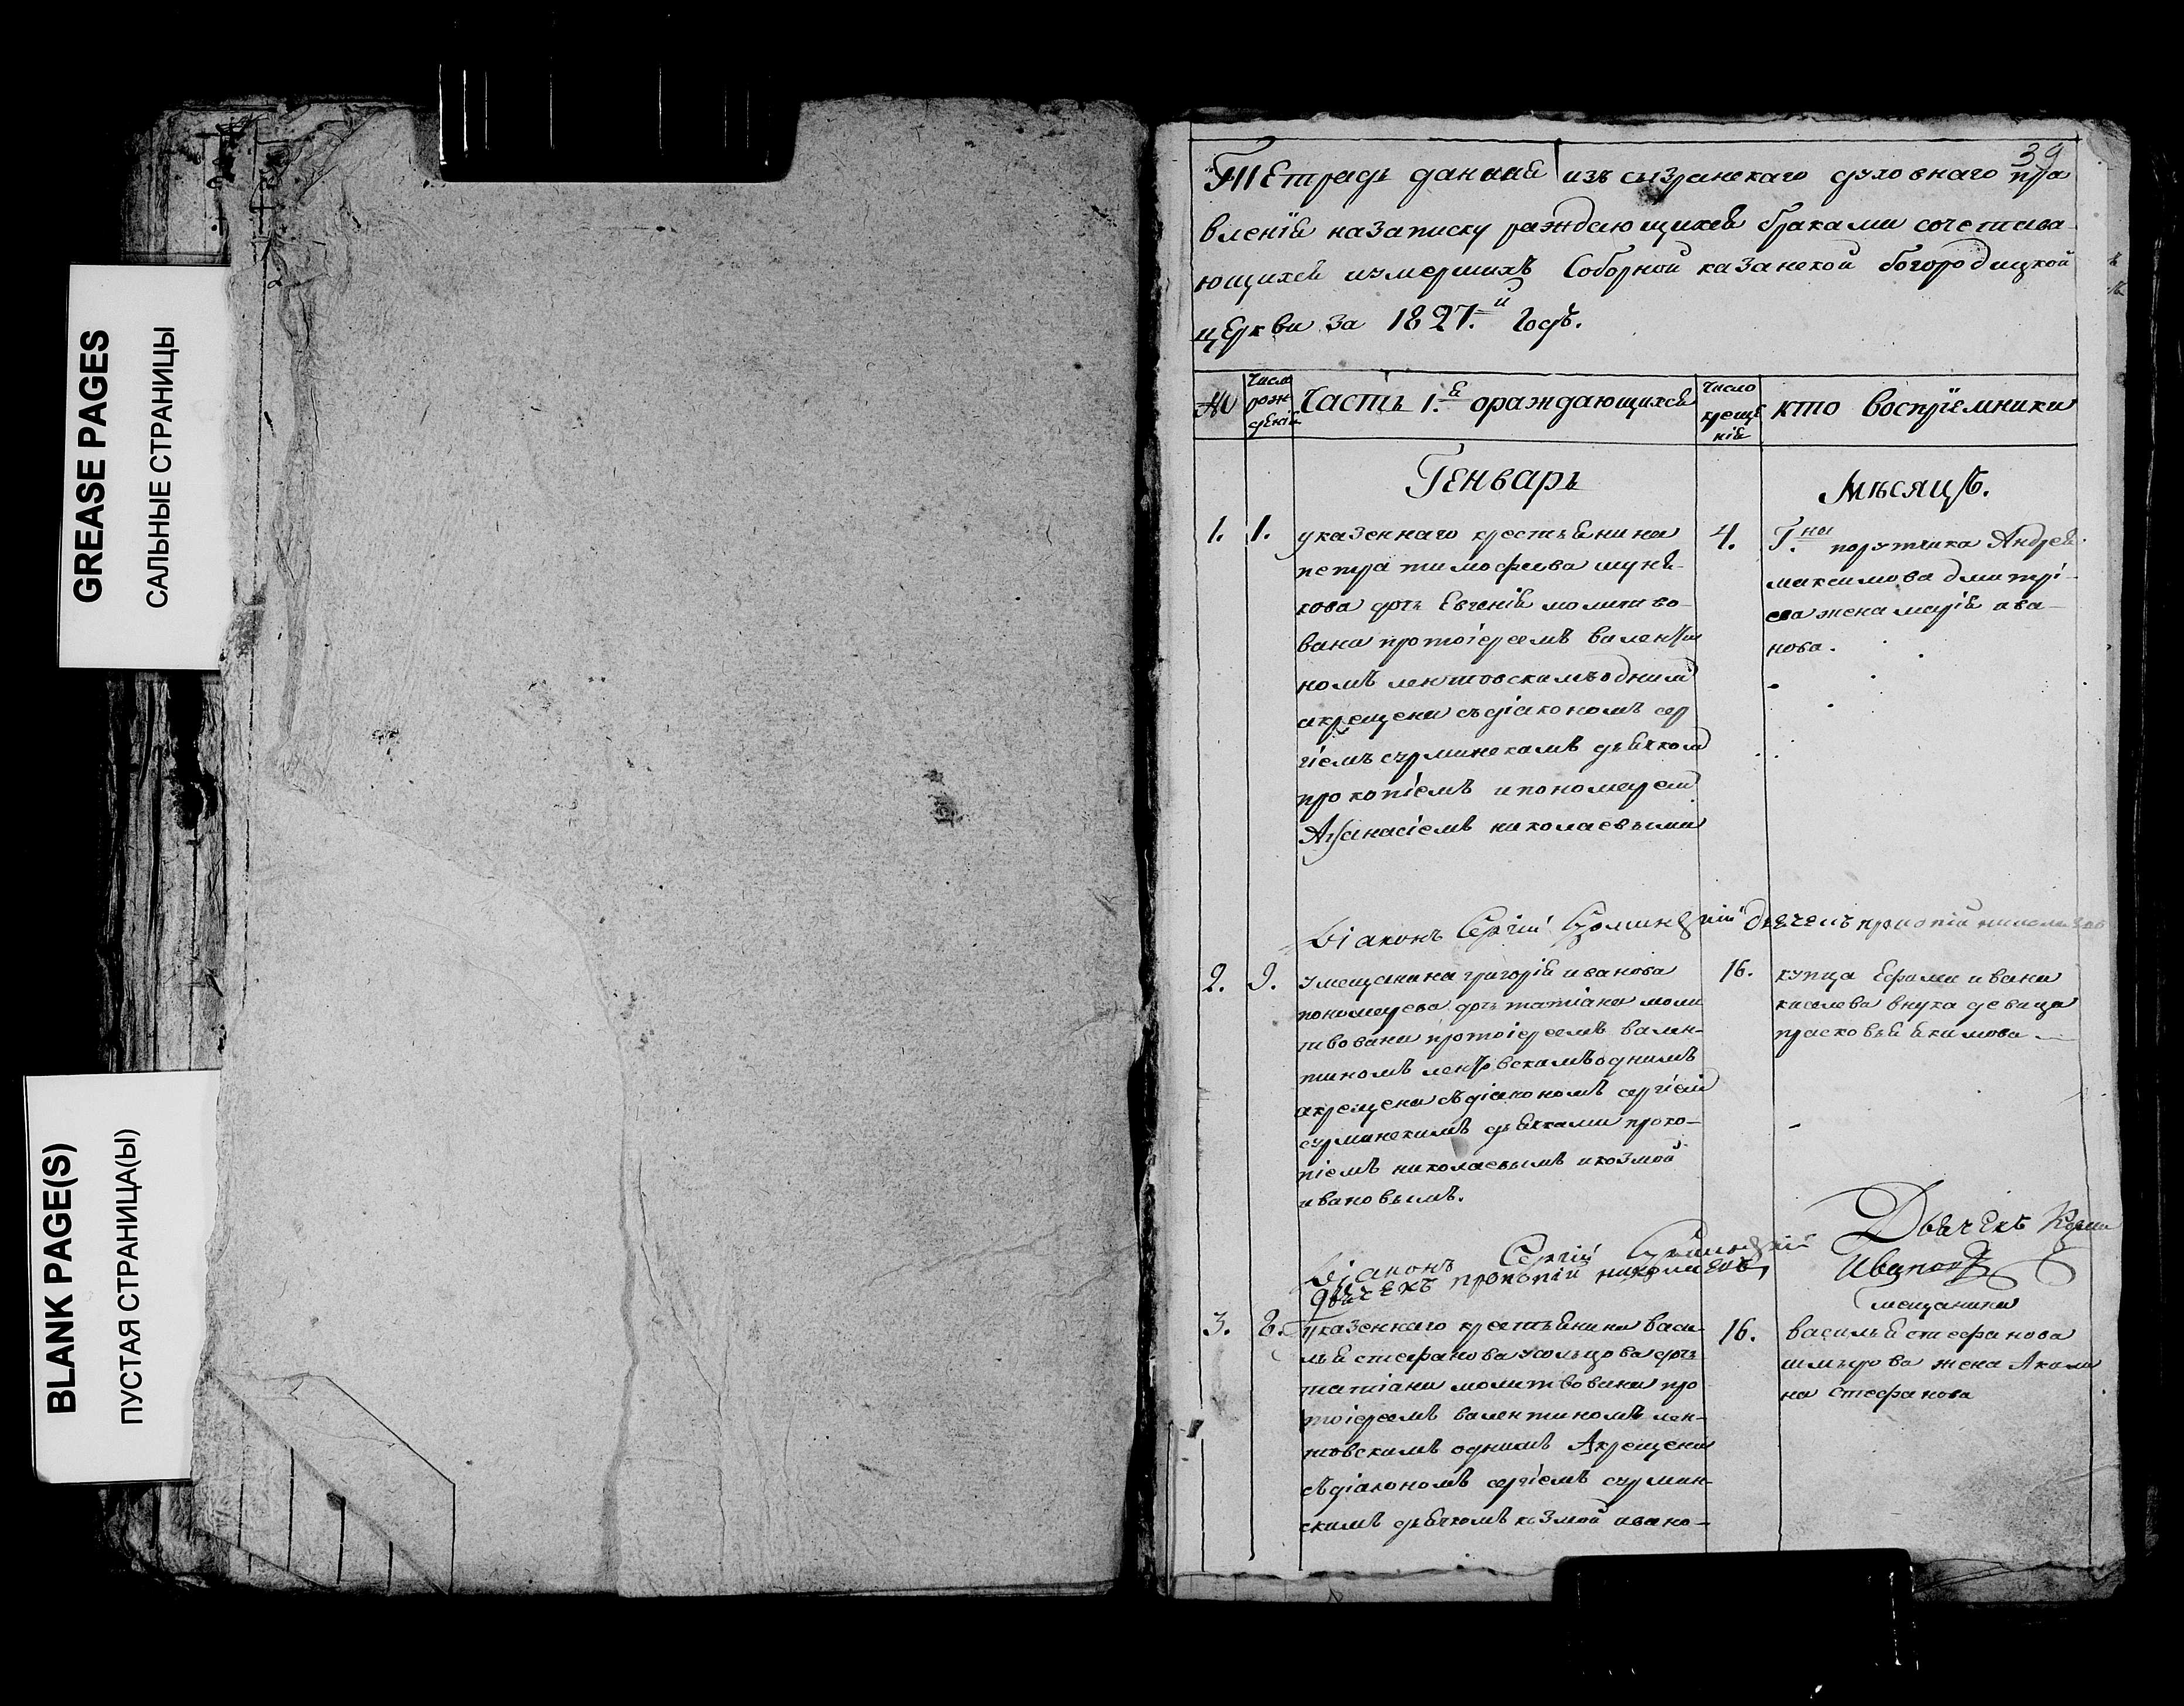 GREASE PAGES
САЛЬНЫЕ СТРАНИЦЫ
BLANK PAGE(S)
ПУСТАЯ СТРАНИЦА(Ы)
39
Тетрадь данная изъ сызранскаго духовнаго пра
вленія назаписку раждающихся браками сочетава
ющихся иумершихъ Соборной казанской богородицкой
церкви за 1827.й Годъ.
№
число рож денія
Часть 1.я ораждающихся
число креще нія
кто воспріемники
Генварь
Мѣсяцъ.
1. 1. указеннаго крестьянина
петра тимофеева
кова дочь Евгенія молитво
вана протоіереемъ валенти
номъ лентовскимъ однимъ
акрещена съдіакономъ сер
гіемъ сурминскимъ дьячком
прокопіемъ ипономарем
Аѳанасіемъ николаевыми
4. Г.на порутчика Андрея
максимова дмитрі
ева жена марія ива
нова.
Діаконъ Сергій Сурминскій дьячекъ прокопій николаевъ
2. 9. умещанина григорія иванова
пономарева дочь татіана моли
твована протоіереемъ вален
тиномъ лентовскимъ однимъ
акрещена съдіакономъ сергіем
сурминскимъ дьячками проко
піемъ николаевымъ икозмой
ивановымъ.
16. купца Ефима ивана
киселева внука девица
прасковья якимова
Діаконъ Сергій Сурминскій
дьячекъ прокопій николаевъ
Дьячекъ Козма
Ивановъ
3. 8. указеннаго крестьянина васи
лья стефанова усольцова дочь
татіана молитвована про
тоіереемъ валентиномъ лен
товскимъ однимъ Акрещена
съдіакономъ сергіемъ сурмин
скимъ дьячкомъ козмой ивано
16. мещанина
василья стефанова
жена Акили
на стефанова